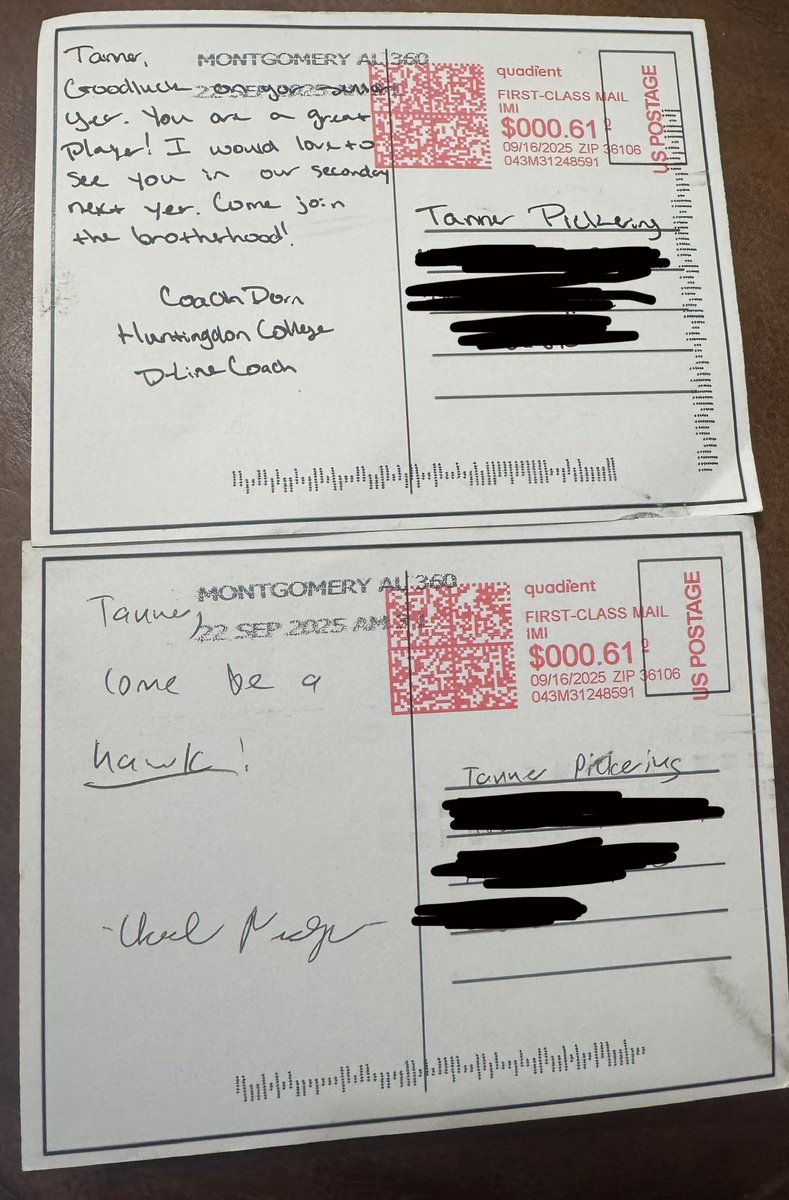 Tanner,
Goodluck on your senior
yer. You are a great
Player! I would love to
see you in our seconday
next yer. Come join
the brotherhood!
Coach Dorn
Huntingdon College
D-Line Coach
MONTGOMERY AL 360
22 SEP 2025
quadient
FIRST-CLASS MAIL
IMI
$000.61⁰
09/16/2025 ZIP 36106
043M31248591
US POSTAGE
Tanner Pickering
MONTGOMERY AL 360
22 SEP 2025 AM
Tanner,
Come be a
hawk!
quadient
FIRST-CLASS MAIL
IMI
$000.61⁰
09/16/2025 ZIP 36106
043M31248591
US POSTAGE
Tanner Pickering